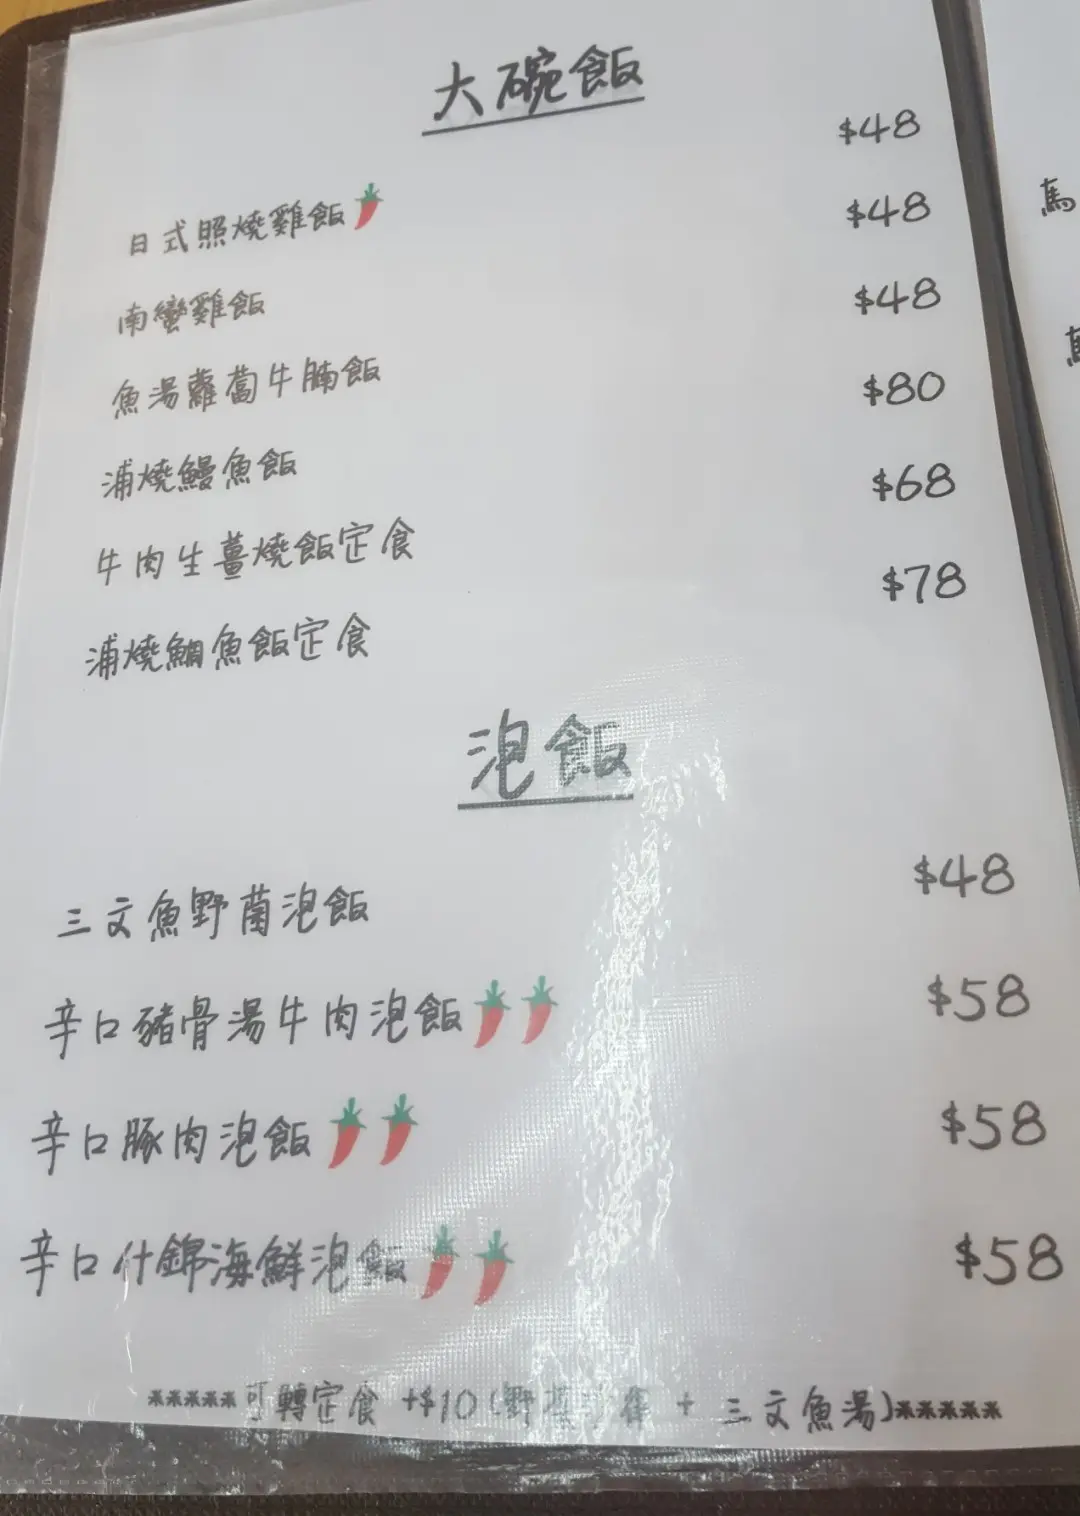 大碗飯
日式照燒雞飯 $48
南蠻雞飯 $48
魚湯蘿蔔牛腩飯 $48
浦燒鰻魚飯 $80
牛肉生薑燒飯定食 $68
浦燒鯛魚飯定食 $78
泡飯
三文魚野菌泡飯 $48
辛口豬骨湯牛肉泡飯 $58
辛口豚肉泡飯 $58
辛口什錦海鮮泡飯 $58
*****可轉定食 +$10(野菜 + 三文魚湯)*****
馬